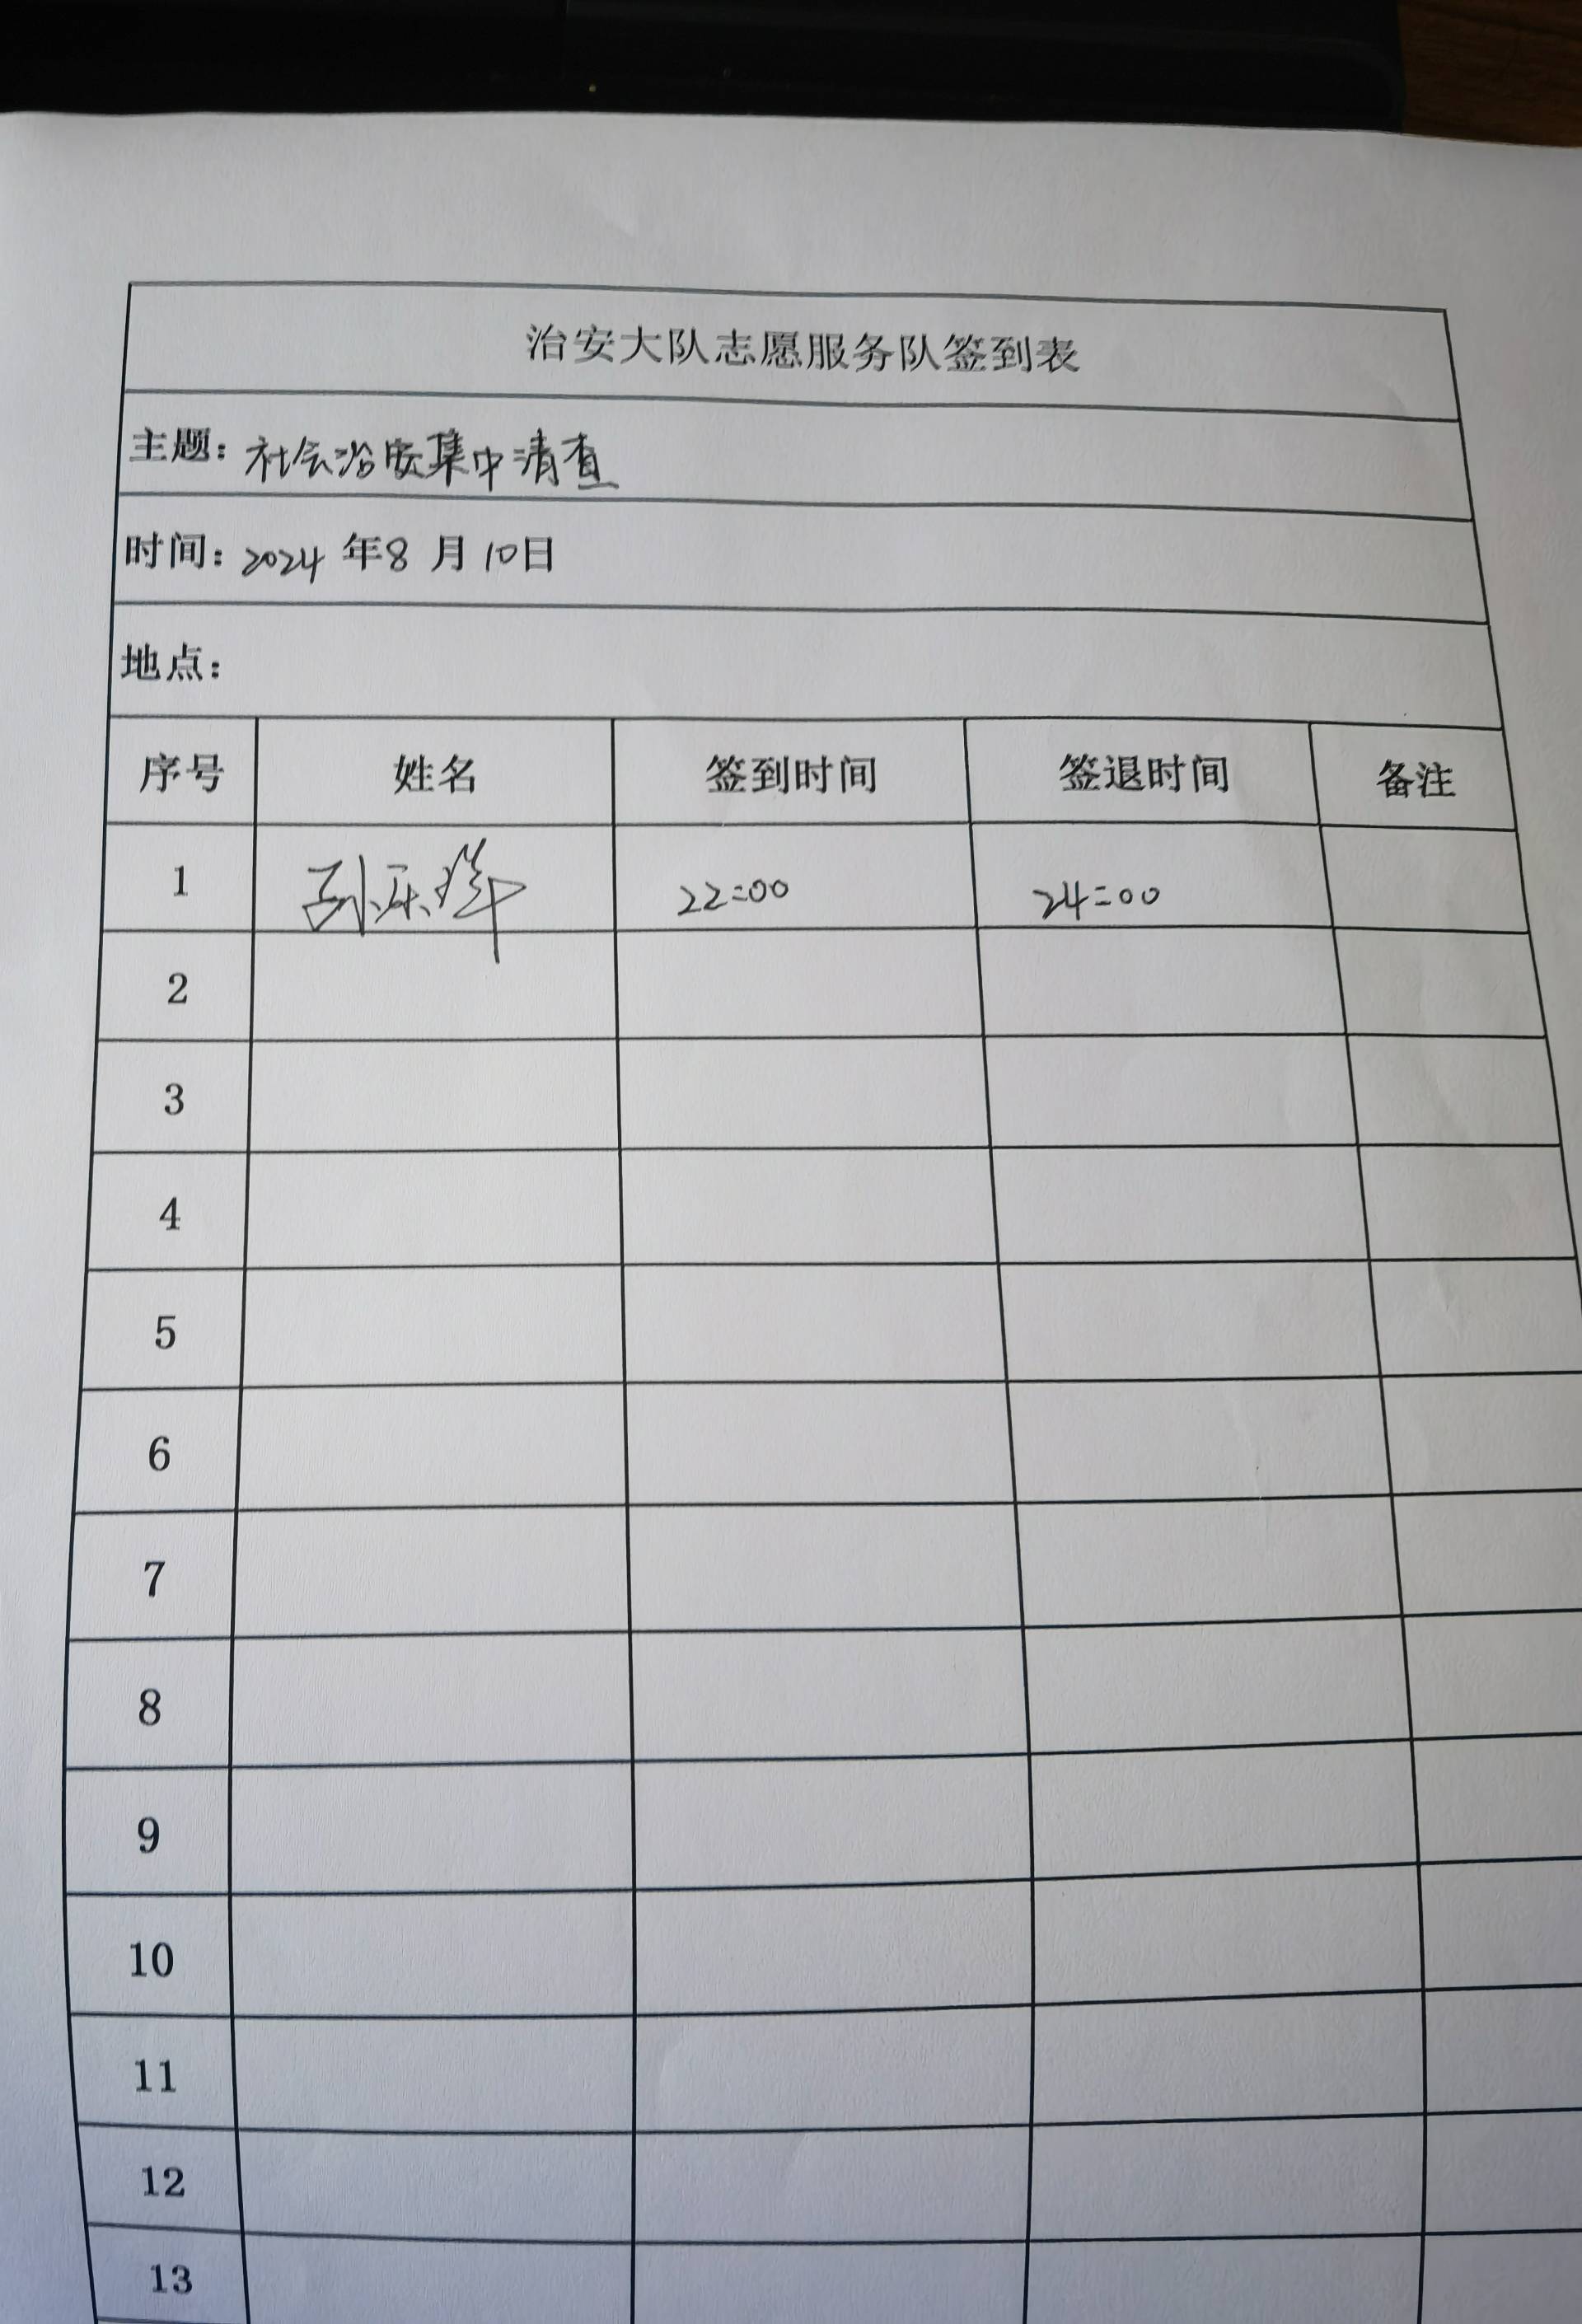 治安大队志愿服务队签到表
主题：社会治安集中清查
时间：2024年8月10日
地点：
序号 姓名 签到时间 签退时间 备注
1 孙乐 22:00 24:00
2
3
4
5
6
7
8
9
10
11
12
13